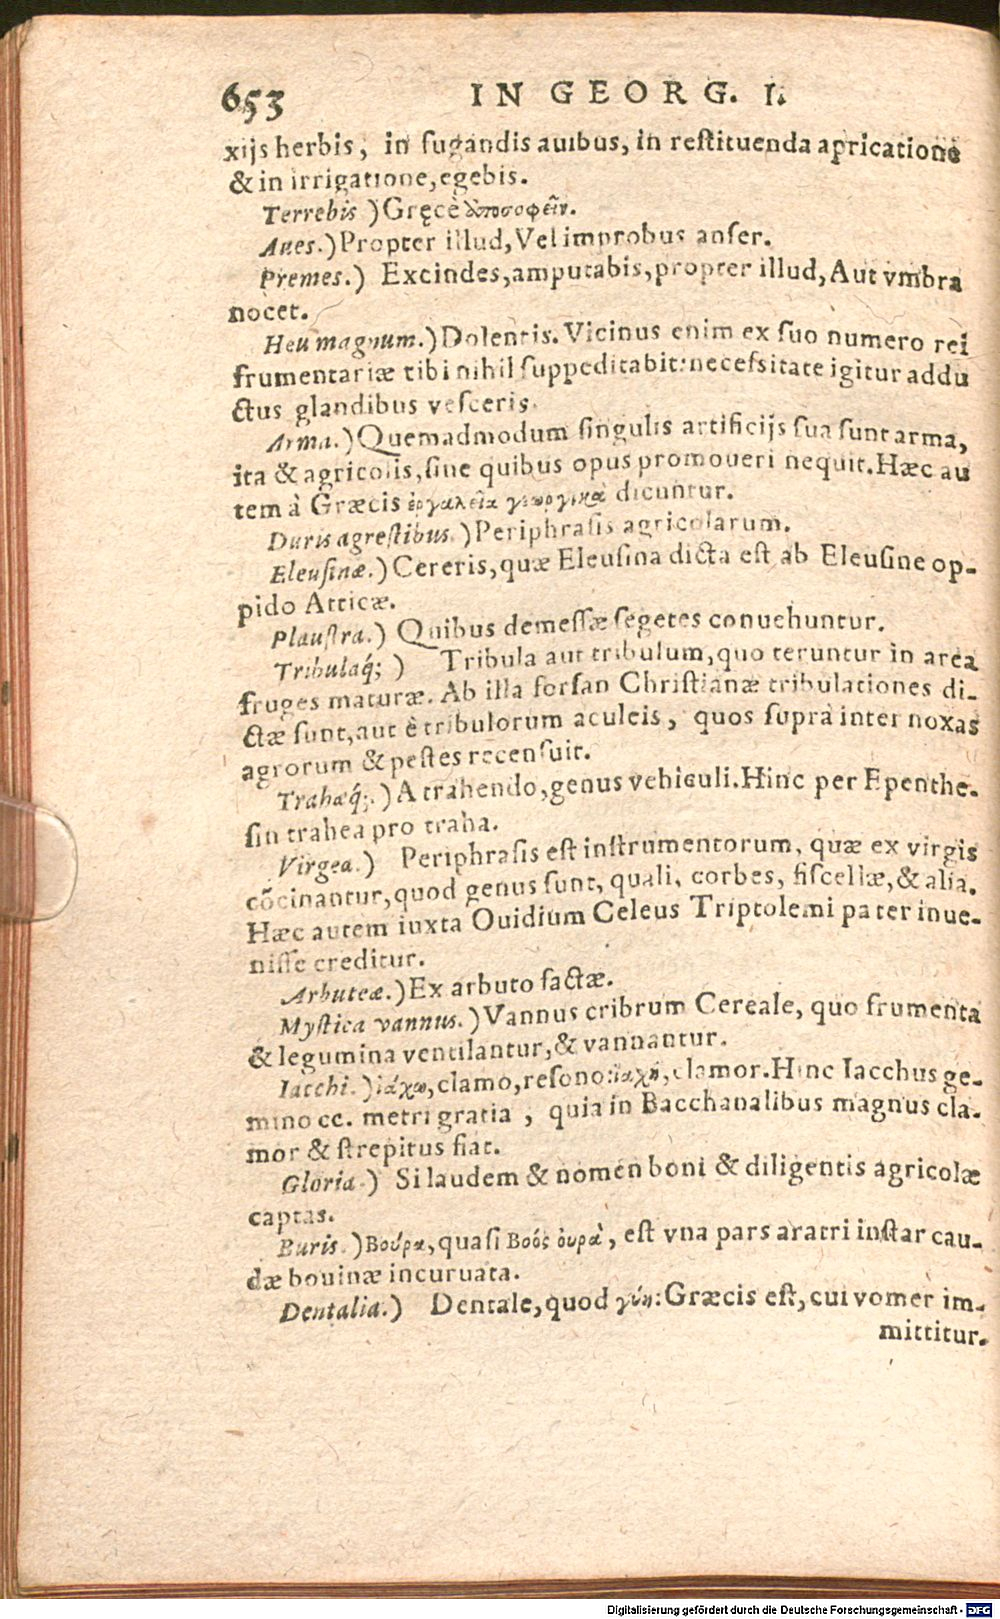 653 IN GEORG. I.
xijs herbis, in fugandis auibus, in restituenda apricatione
& in irrigatione, egebis.
Terrebis ) Gręcè ἀποσοφεῖν.
Aues.) Propter illud, Vel improbus anser.
Premes.) Excindes, amputabis, propter illud, Aut vmbra
nocet.
Heu magnum.) Dolentis. Vicinus enim ex suo numero rei
frumentariæ tibi nihil suppeditabit: necessitate igitur addu
ctus glandibus vesceris.
Arma.) Quemadmodum singulis artificijs sua sunt arma,
ita & agricolis, sine quibus opus promoueri nequit. Hæc au
tem à Græcis ἐργαλεῖα γεωργικὰ dicuntur.
Duris agrestibus.) Periphrasis agricolarum.
Eleusinæ.) Cereris, quæ Eleusina dicta est ab Eleusine op-
pido Atticæ.
Plaustra.) Quibus demessæ segetes conuehuntur.
Tribulaq́; ) Tribula aut tribulum, quo teruntur in area
fruges maturæ. Ab illa forsan Christianæ tribulationes di-
ctæ sunt, aut è tribulorum aculeis, quos suprà inter noxas
agrorum & pestes recensuit.
Trahæq́;.) A trahendo, genus vehiculi. Hinc per Epenthe-
sin trahea pro traha.
Virgea.) Periphrasis est instrumentorum, quæ ex virgis
cōcinantur, quod genus sunt, quali, corbes, fiscellæ, & alia.
Hæc autem iuxta Ouidium Celeus Triptolemi pater inue-
nisse creditur.
Arbuteæ.) Ex arbuto factæ.
Mystica vannus.) Vannus cribrum Cereale, quo frumenta
& legumina ventilantur, & vannantur.
Iacchi.) ἰάχω, clamo, resono: ἰαχὴ, clamor. Hinc Iacchus ge-
mino cc. metri gratia, quia in Bacchanalibus magnus cla-
mor & strepitus fiat.
Gloria.) Si laudem & nomen boni & diligentis agricolæ
captas.
Buris.) Βούρα, quasi Βοός ουρὰ, est vna pars aratri instar cau-
dæ bouinæ incuruata.
Dentalia.) Dentale, quod γύη: Græcis est, cui vomer im-
mittitur.
Digitalisierung gefördert durch die Deutsche Forschungsgemeinschaft - DFG